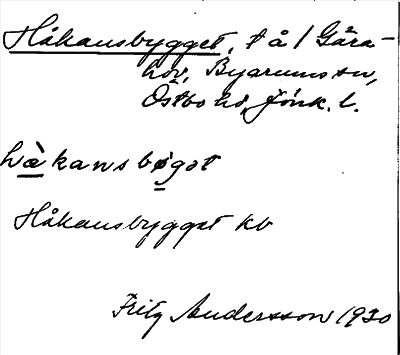 Håkansbygget, t å / Gära-
hov, Byarums sn,
Östbo hd, Jönk. l.
hàkansbøgət
Håkansbygget kb
Fritz Andersson 1930